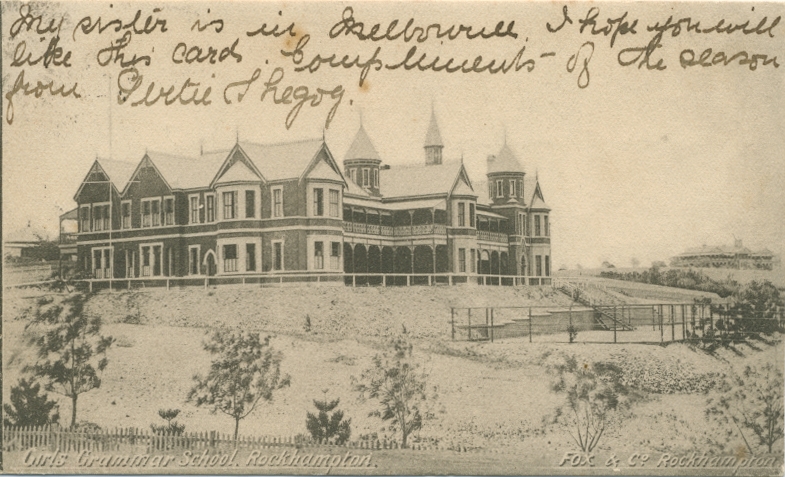 My sister is in Melbourne. I hope you will
like this card. Compliments of the season
from Gertie Shegog.
Girls Grammar School. Rockhampton.
Fox & Co Rockhampton